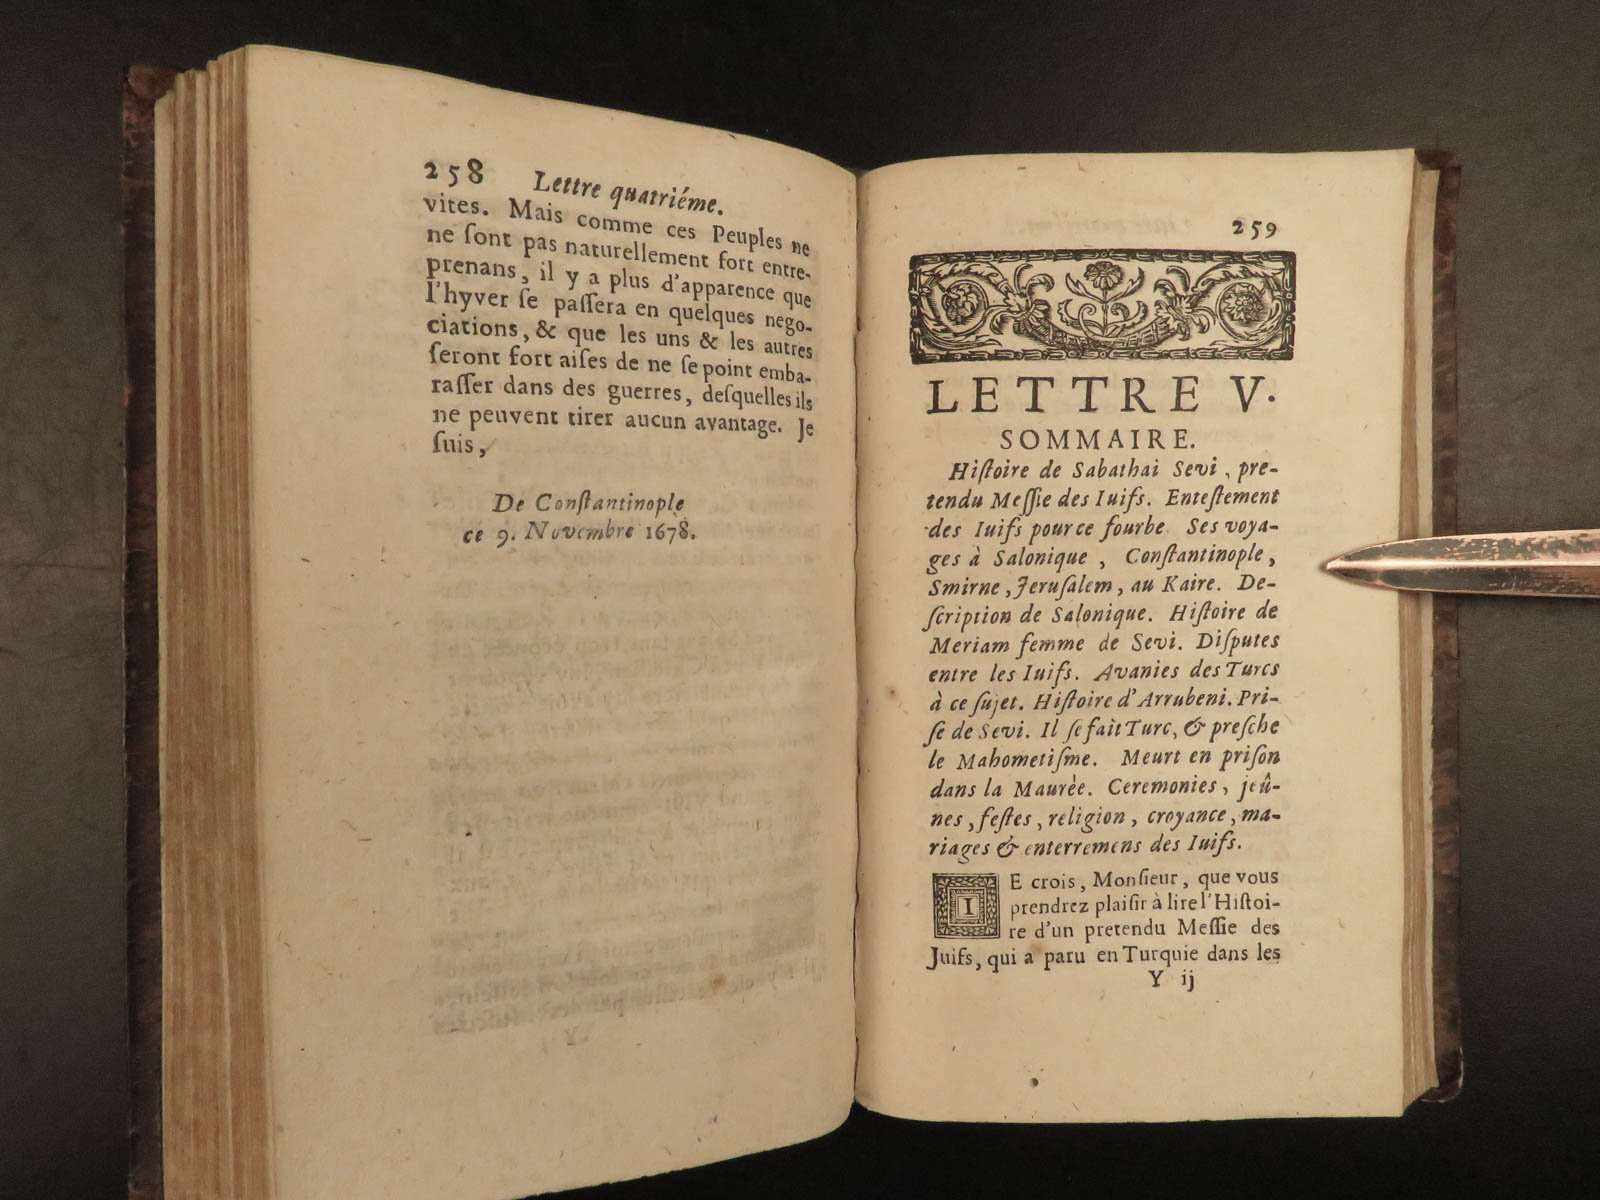 258 Lettre quatriéme.
vites. Mais comme ces Peuples ne
ne ſont pas naturellement fort entre-
prenans, il y a plus d'apparence que
l'hyver ſe paſſera en quelques nego-
ciations, & que les uns & les autres
ſeront fort aiſes de ne ſe point emba-
raſſer dans des guerres, deſquelles ils
ne peuvent tirer aucun avantage. Je
ſuis,
De Conſtantinople
ce 9. Novembre 1678.
259
LETTRE V.
SOMMAIRE.
Hiſtoire de Sabathai Sevi, pre-
tendu Meſſie des Iuifs. Enteſtement
des Iuifs pour ce fourbe Ses voya-
ges à Salonique, Conſtantinople,
Smirne, Jeruſalem, au Kaire. De-
ſcription de Salonique. Hiſtoire de
Meriam femme de Sevi. Diſputes
entre les Iuifs. Avanies des Turcs
à ce ſujet. Hiſtoire d'Arrubeni. Pri-
ſe de Sevi. Il ſe fait Turc, & preſche
le Mahometiſme. Meurt en priſon
dans la Maurèe. Ceremonies, jeû-
nes, feſtes, religion, croyance, ma-
riages & enterremens des Iuifs.
IE crois, Monſieur, que vous
prendrez plaiſir à lire l'Hiſtoi-
re d'un pretendu Meſſie des
Juifs, qui a paru en Turquie dans les
Y ij